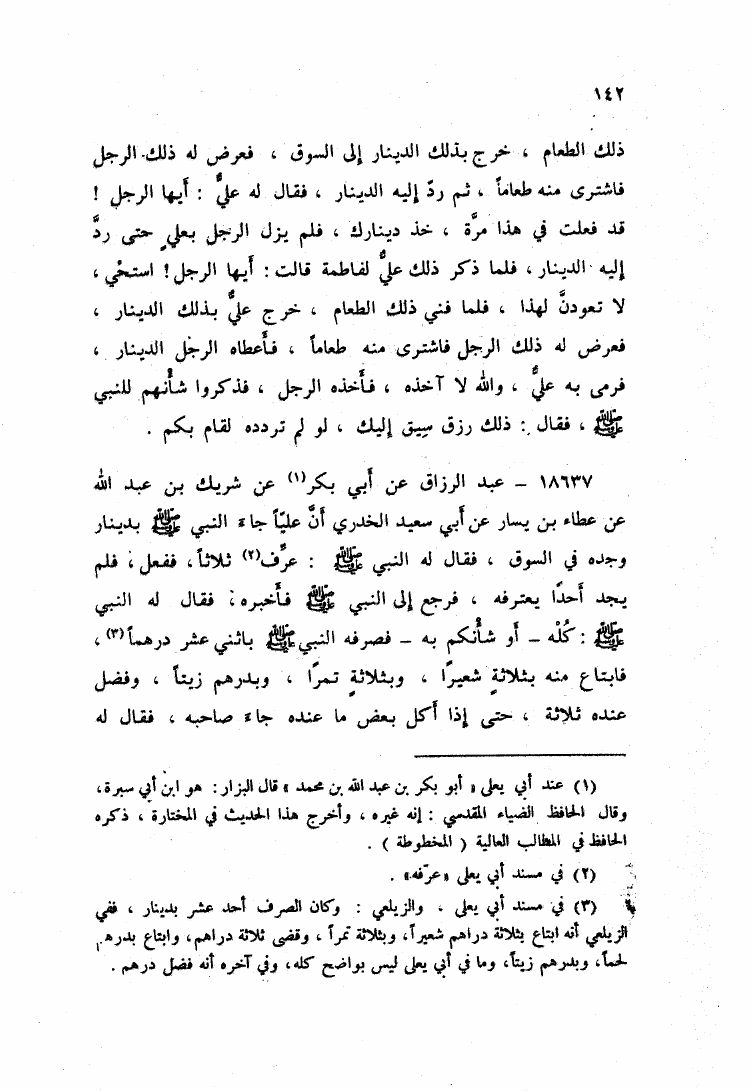 ١٤٢
ذلك الطعام ، خرج بذلك الدينار إلى السوق ، فعرض له ذلك الرجل
فاشترى منه طعاماً ، ثم ردّ إليه الدينار ، فقال له عليٌّ : أَيها الرجل !
قد فعلت في هذا مرَّة ، خذ دينارك ، فلم يزل الرجل بعليٍ حتى ردَّ
إليه الدينار ، فلما ذكر ذلك عليٌّ لفاطمة قالت : أَيها الرجل ! استحْي ،
لا تعودنَّ لهذا ، فلما فني ذلك الطعام ، خرج عليٌّ بذلك الدينار ،
فعرض له ذلك الرجل فاشترى منه طعاماً ، فأَعطاه الرجل الدينار ،
فرمى به عليٌّ ، والله لا آخذه ، فأَخذه الرجل ، فذكروا شأْنهم للنبي
ﷺ ، فقال : ذلك رزق سِيق إليك ، لو لم تردده لقام بكم .
١٨٦٣٧ – عبد الرزاق عن أَبي بكر(١) عن شريك بن عبد الله
عن عطاء بن يسار عن أَبي سعيد الخدري أَنَّ عليّاً جاءَ النبي ﷺ بدينار
وجده في السوق ، فقال له النبي ﷺ : عرِّف(٢) ثلاثاً ، ففعل ، فلم
يجد أَحدًا يعترفه ، فرجع إلى النبي ﷺ فأَخبره ، فقال له النبي
ﷺ : كُلْه – أَو شأْنكم به – فصرفه النبي ﷺ باثني عشر درهماً(٣) ،
فابتاع منه بثلاثةٍ شعيرًا ، وبثلاثةٍ تمرًا ، وبدرهم زيتاً ، وفضل
عنده ثلاثة ، حتى إذا أَكل بعض ما عنده جاءَ صاحبه ، فقال له
(١) عند أبي يعلى « أبو بكر بن عبد الله بن محمد » قال البزار : هو ابن أبي سبرة ،
وقال الحافظ الضياء المقدسي : إنه غيره ، وأخرج هذا الحديث في المختارة ، ذكره
الحافظ في المطالب العالية ( المخطوطة ) .
(٢) في مسند أبي يعلى «عرّفه» .
(٣) في مسند أبي يعلى ، والزيلعي : وكان الصرف أحد عشر بدينار ، ففي
الزيلعي أنه ابتاع بثلاثة دراهم شعيراً ، وبثلاثة تمراً ، وقضى ثلاثة دراهم ، وابتاع بدرهم
لحماً ، وبدرهم زيتاً ، وما في أبي يعلى ليس بواضح كله ، وفي آخره أنه فضل درهم .